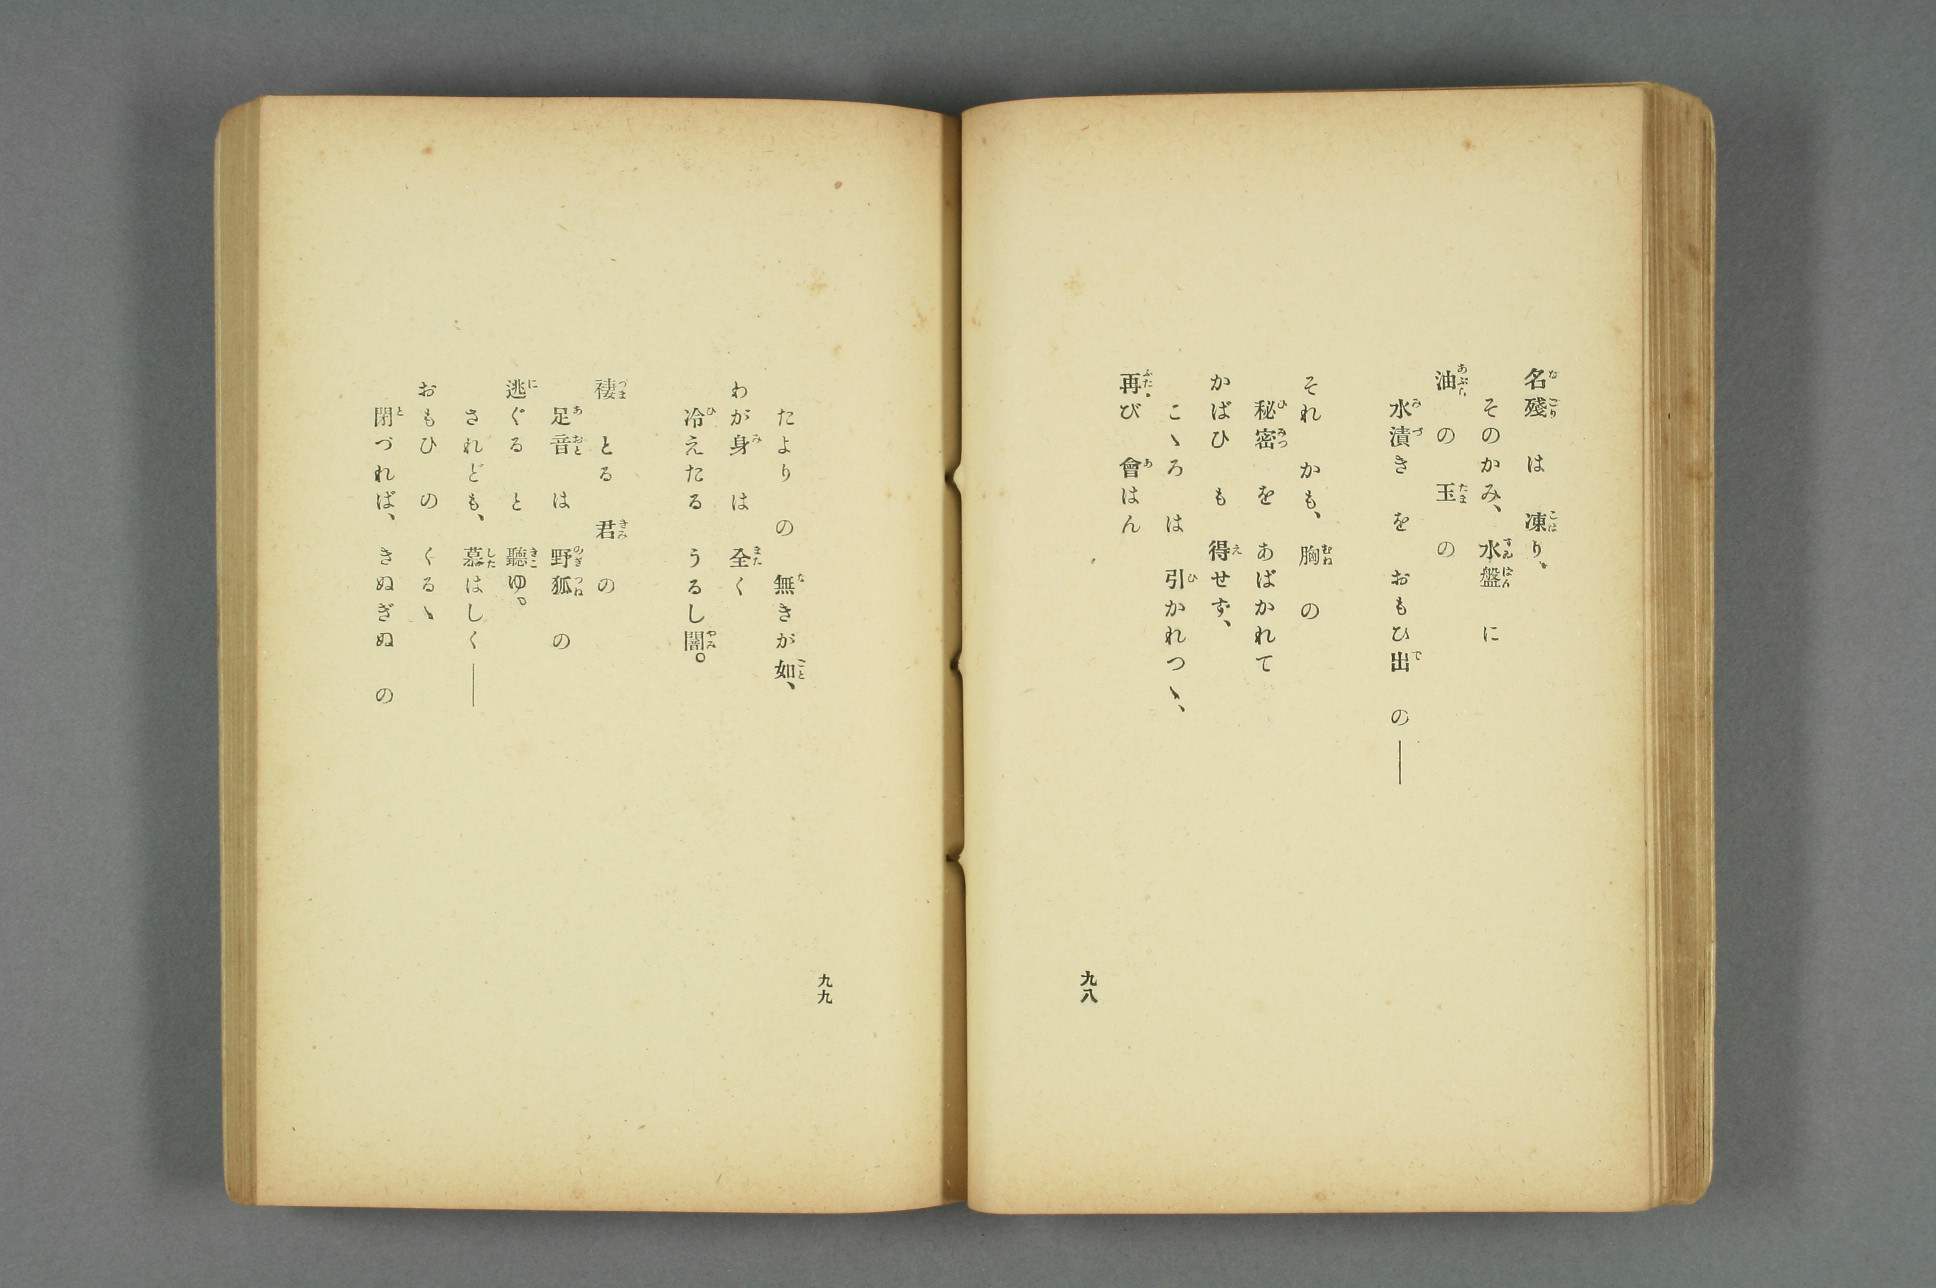 名殘は凍り、
そのかみ、水盤に
油の玉の
水漬きをおもひ出の──
それかも、胸の
秘密をあばかれて
かばひも得せず、
こゝろは引かれつゝ、
再び會はん
九八
たよりの無きが如、
わが身は全く
冷えたるうるし闇。
褄とる君の
足音は野狐の
逃ぐると聽ゆ。
されども、慕はしく──
おもひのくるゝ
閉づれば、きぬぎぬの
九九